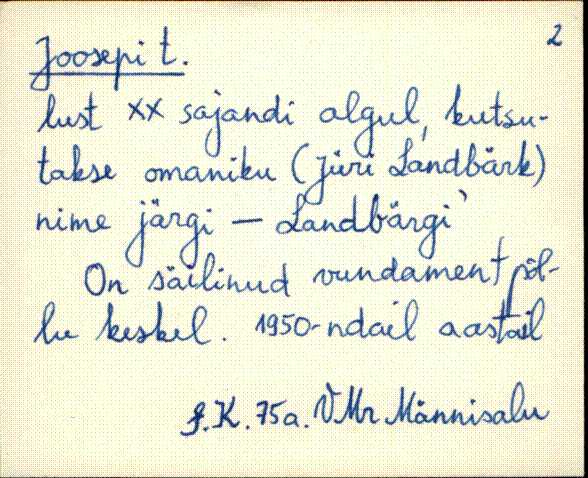 2
Joosepi t.
lust XX sajandi algul, kutsu-
takse omaniku (Jüri Landbärk)
nime järgi — Landbärgi'
On säilinud vundament põl-
lu keskel. 1950-ndail aastail
J.K. 75a. VMr Männisalu